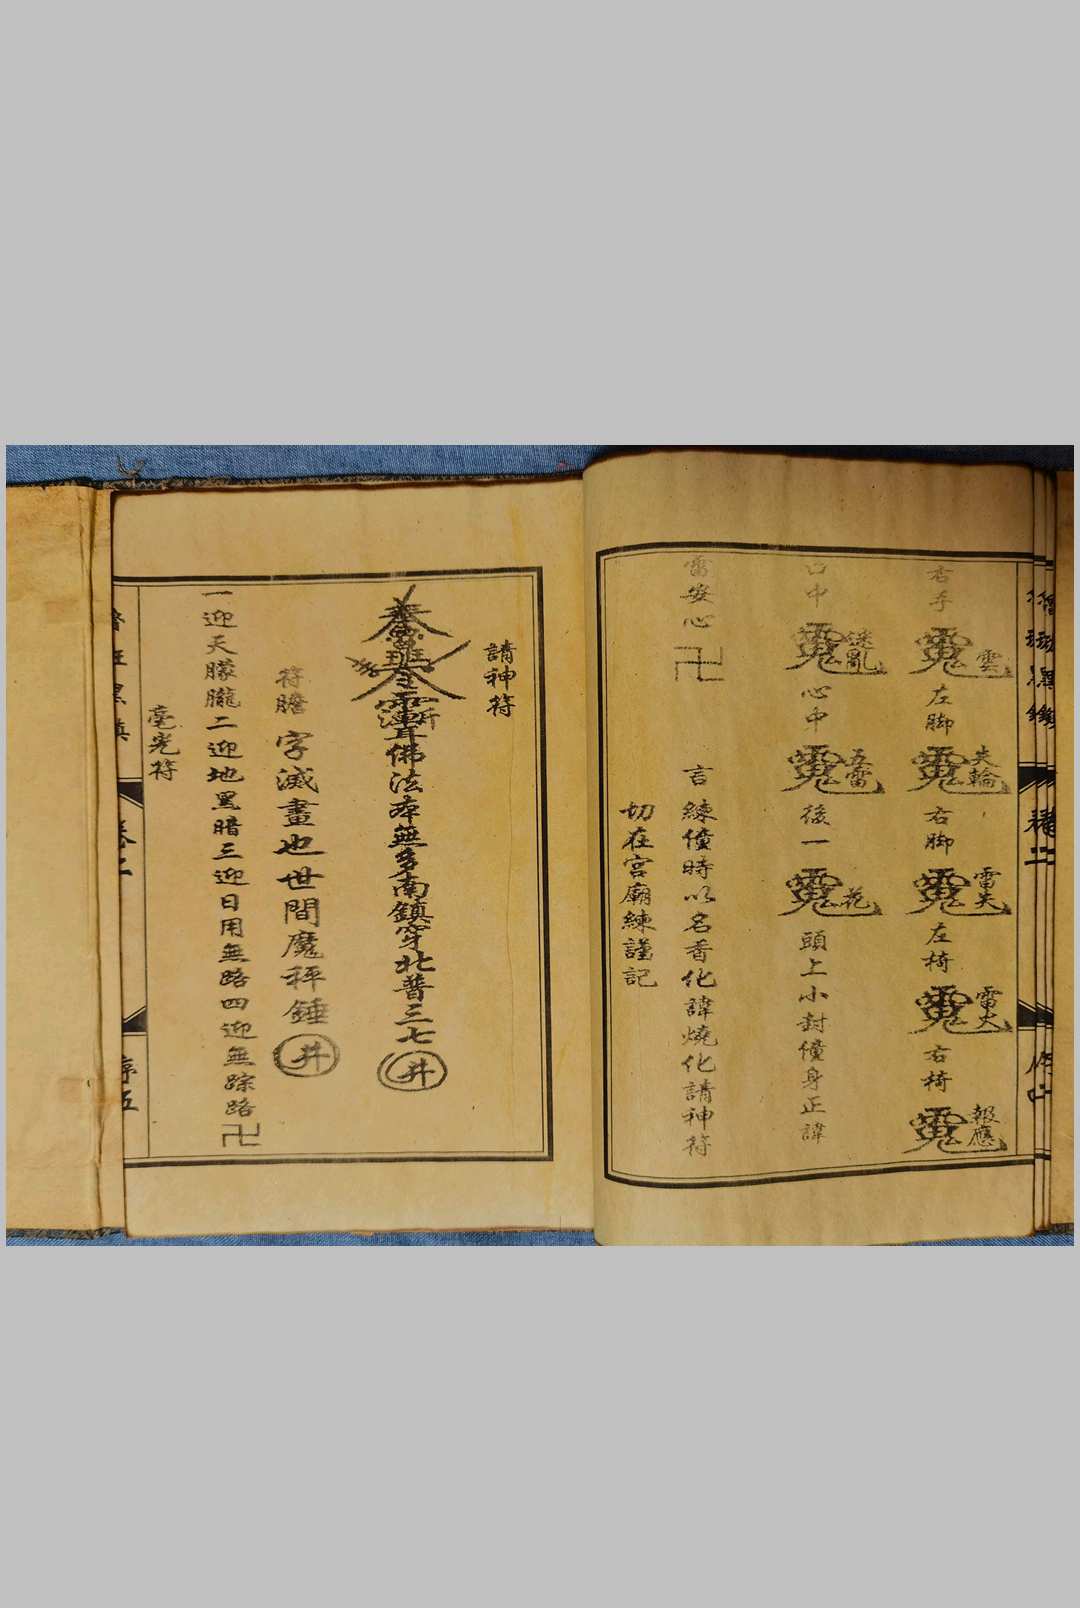 右手 雲
左脚 夫輪
右脚 雷夫
左椅 雷火
右椅 報應
口中 迷亂
心中 五雷
後一 花
頭上小封 身正諱
雷安心卍
言練 時以名香化諱燒化請神符
切在宮廟練謹記
請神符
奉 魯班令 斬 佛法本無多南鎮穿北普三七井
符膽 字滅畫也世間魔秤錘井
一迎天朦朧二迎地黑暗三迎日用無路四迎無踪路卍
毫光符
卷二
序五